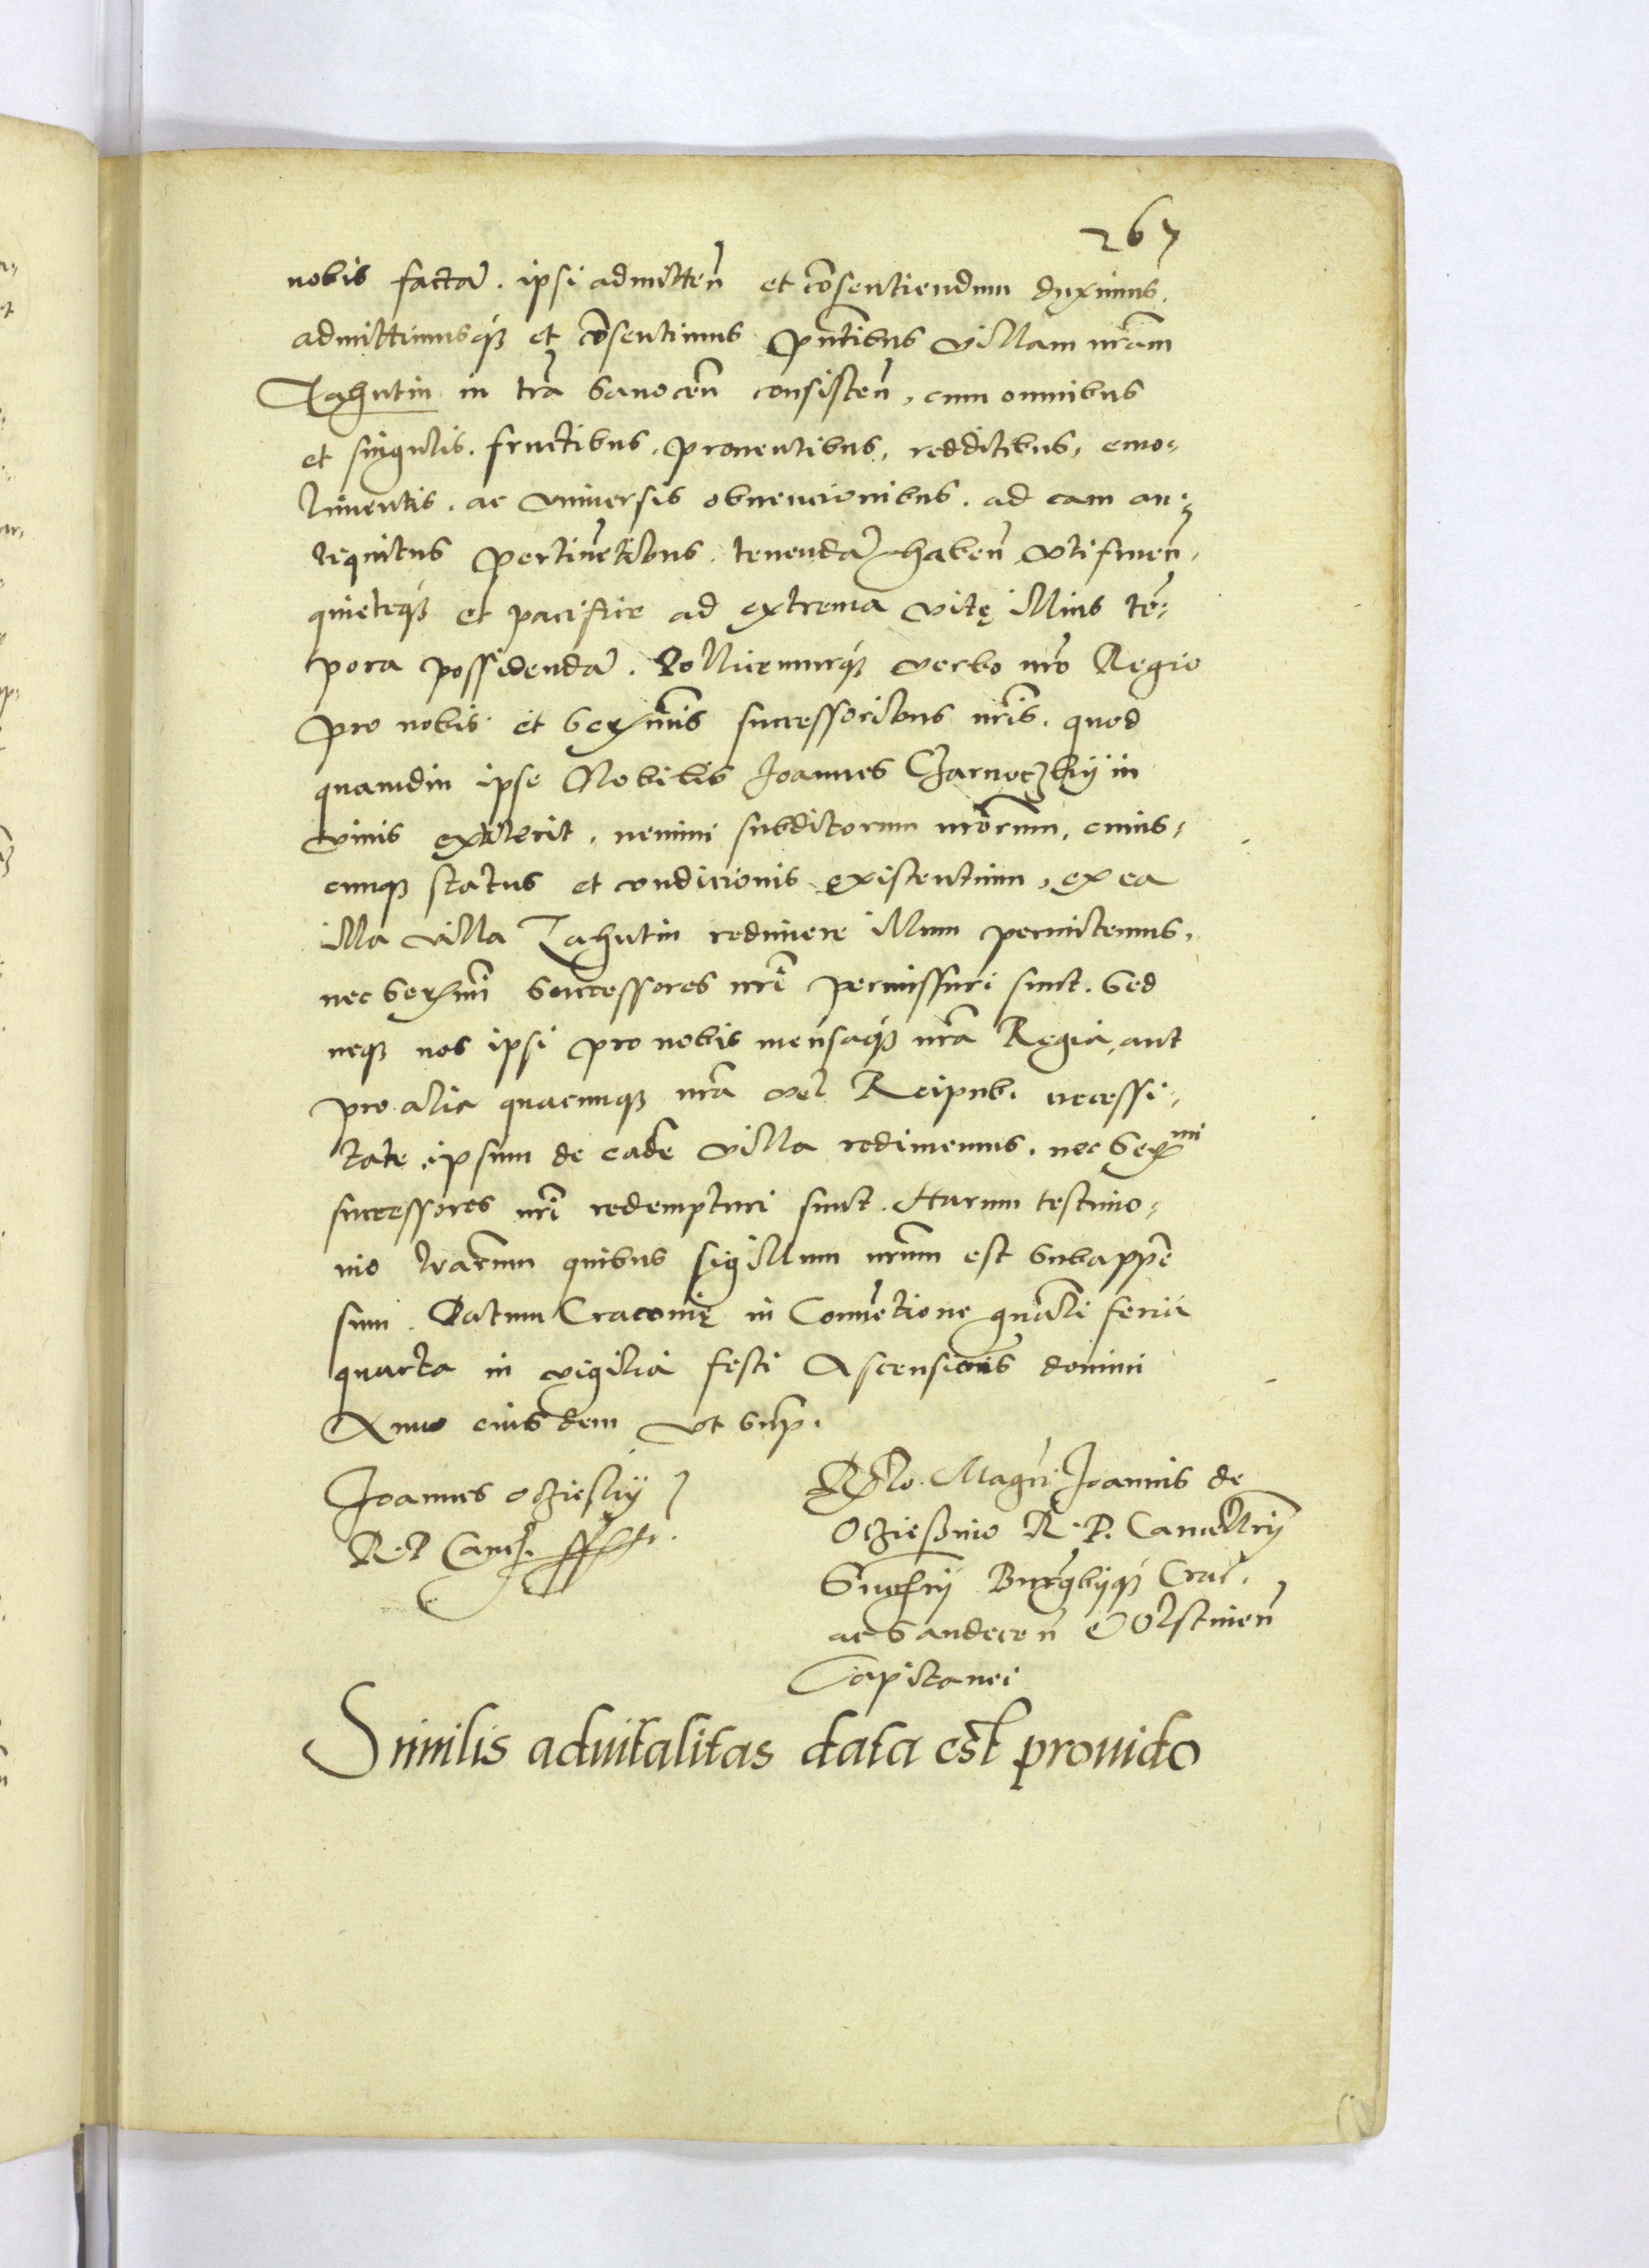 267
nobis factā. ipsi admitteñ et cōsentiendum duximus.
admittimusq́ꝫ et cōsentimus pn̄tibus villam nr̄am
Zahutin in tr̄a Sanoceñ consisteñ, cum omnibus
et singulis. fructibus, prouentibus, redditibus, emo⸗
limentis. ac vniuersis obuencionibus. ad eam an⸗
tiquitus pertinētibus. tenendā habeñ vtifrueñ.
quieteq́ꝫ et pacifice ad extrema vitę illius tē⸗
pora possidendā. Pollicemurq́ꝫ verbo nr̄o Regio
pro nobis et Serᵐīs successoribus nr̄is. quod
quamdiu ipse Nobilis Joannes Czarnoczkij in
viuis extiterit, nemini subditorum nr̄orum, cuius⸗
cunqꝫ status et condicionis existentium, ex ea
illa villa Zahutin redimere illum permittemus.
nec Serᵐī Successores nr̄i permissuri sunt. Sed
neqꝫ nos ipsi pro nobis mensaq́ꝫ nr̄a Regia, aut
pro alia quacunqꝫ nr̄a vel Reipub. necessi⸗
tate. ipsum de eadē villa redimemus. nec Serᵐⁱ
successores nr̄i redempturi sunt. Harum testimo⸗
nio lr̄arum quibus sigillum nr̄um est Subappē
sum. Datum Cracouię in Conuētione gn̄ali feria
quarta in vigilia festi Ascensionis domini
Anno eiusdem vt Sup̄.
Joannes oczieskij
R. P. Canc̄.
Rel̄o. Magc̄i Joannis de
Oczieszino R. P. Cancellarij
Gn̄alis Burgbijq́ꝫ Crac̄.
ac Sandeceñ Olstineñ
Capitanei
Similis aduitalitas data est prouido